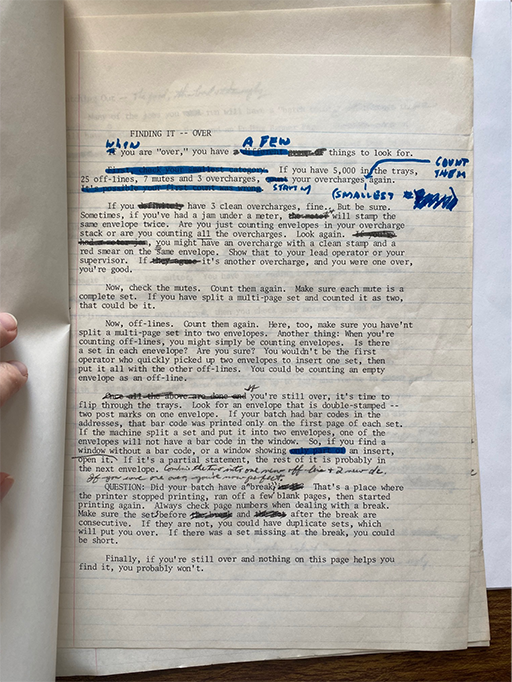 FINDING IT -- OVER
WHEN
A FEW
you are "over," you have things to look for.
COUNT
THEM
If you have 5,000 in the trays,
25 off-lines, 7 mutes and 3 overcharges, your overcharges again.
START W
(SMALLEST #
If you have 3 clean overcharges, fine. But be sure.
Sometimes, if you've had a jam under a meter, will stamp the
same envelope twice. Are you just counting envelopes in your overcharge
stack or are you counting all the overcharges. Look again.
you might have an overcharge with a clean stamp and a
red smear on the same envelope. Show that to your lead operator or your
supervisor. If it's another overcharge, and you were one over,
you're good.
Now, check the mutes. Count them again. Make sure each mute is a
complete set. If you have split a multi-page set and counted it as two,
that could be it.
Now, off-lines. Count them again. Here, too, make sure you have'nt
split a multi-page set into two envelopes. Another thing: When you're
counting off-lines, you might simply be counting envelopes. Is there
a set in each enevelope? Are you sure? You wouldn't be the first
operator who quickly picked up two envelopes to insert one set, then
put it all with the other off-lines. You could be counting an empty
envelope as an off-line.
Once all the above are done and If you're still over, it's time to
flip through the trays. Look for an envelope that is double-stamped --
two post marks on one envelope. If your batch had bar codes in the
addresses, that bar code was printed only on the first page of each set.
If the machine split a set and put it into two envelopes, one of the
envelopes will not have a bar code in the window. So, if you find a
window without a bar code, or a window showing an insert,
open it. If it's a partial statement, the rest of it is probably in
the next envelope. Combine the two into one new off line & 2 new de.
If you were one over, you're now perfect.
QUESTION: Did your batch have a break? That's a place where
the printer stopped printing, ran off a few blank pages, then started
printing again. Always check page numbers when dealing with a break.
Make sure the sets before and after the break are
consecutive. If they are not, you could have duplicate sets, which
will put you over. If there was a set missing at the break, you could
be short.
Finally, if you're still over and nothing on this page helps you
find it, you probably won't.